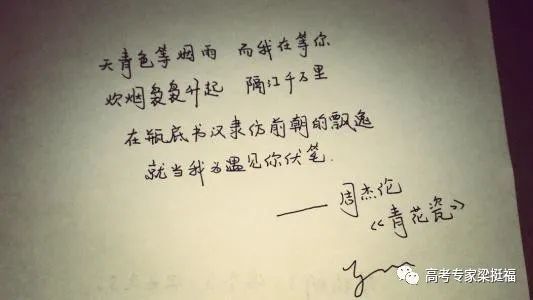 天青色等烟雨 而我在等你
炊烟袅袅升起 隔江千万里
在瓶底书汉隶仿前朝的飘逸
就当我为遇见你伏笔.
——周杰伦
《青花瓷》
高考专家梁挺福